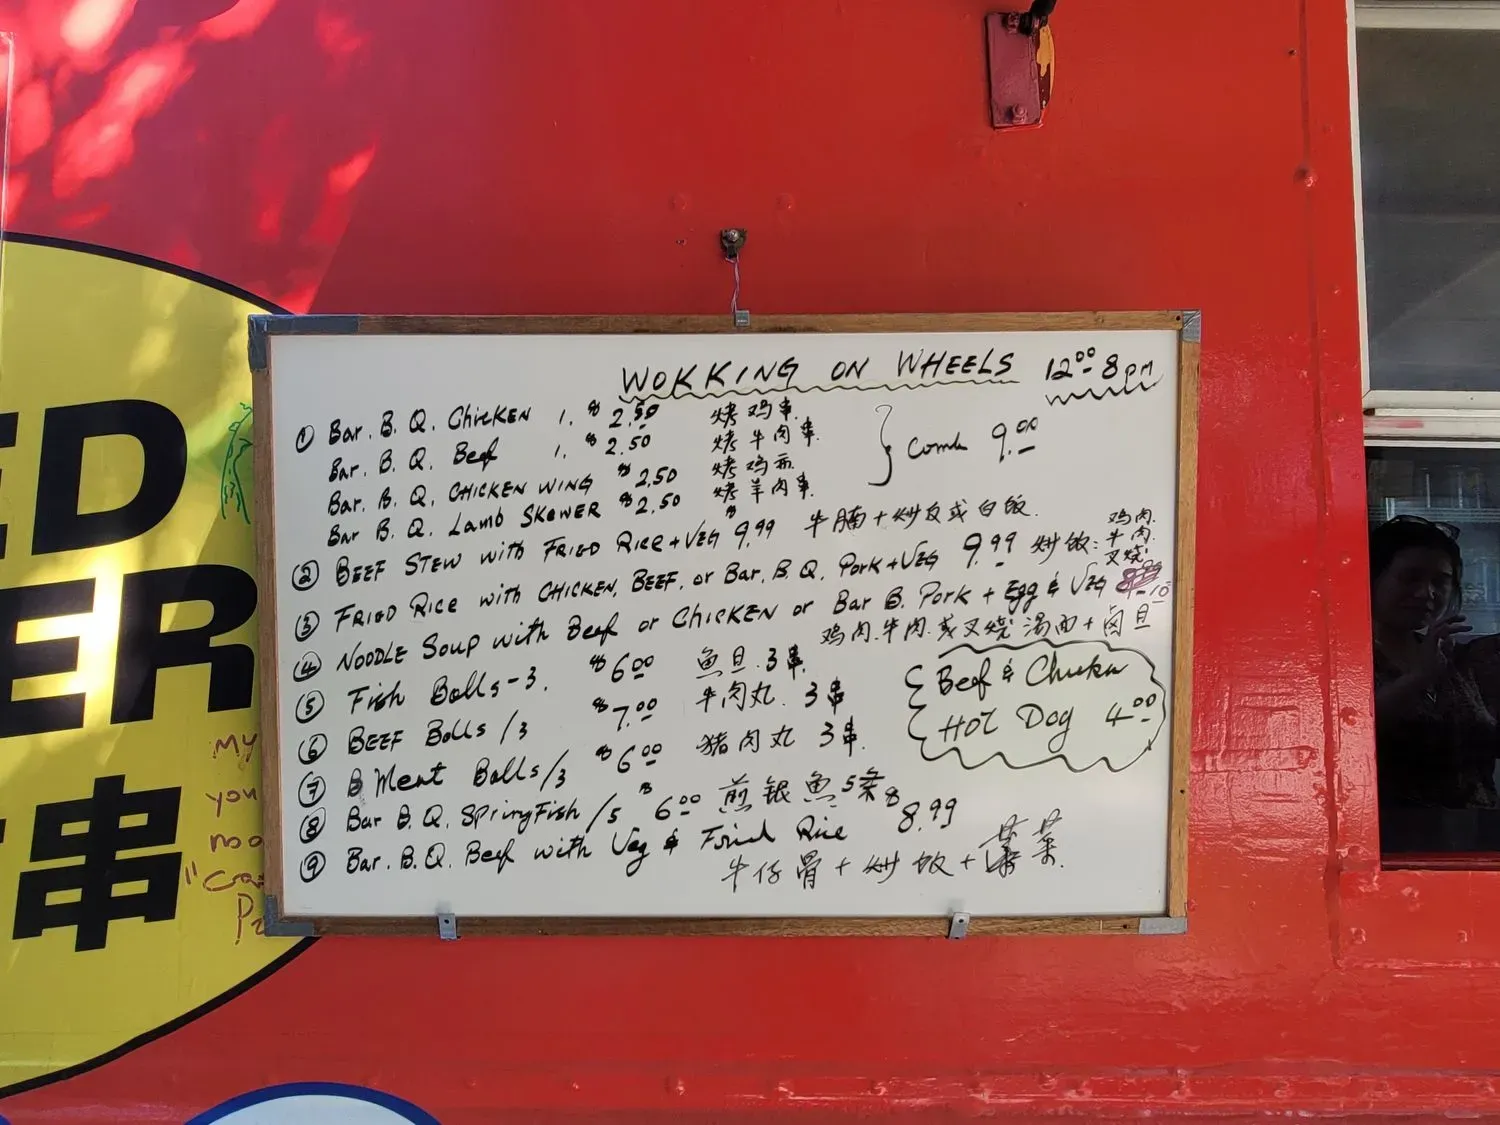 WOKKING ON WHEELS 12.00-8pm
① Bar. B. Q. ChicKEN 1. $ 2.50 烤鸡串.
Bar. B. Q. Beef 1. $ 2.50 烤牛肉串.
Bar. B. Q. CHICKEN WING $ 2.50 烤鸡
Bar B. Q. Lamb SKEWER $ 2.50 烤羊肉串.
} Combo 9.00
② BEEF STEW with FRIED RICE + VEG $ 9.99 牛腩 + 炒 或白饭.
③ FRIED Rice with CHICKEN, BEEF, or Bar. B. Q. Pork + VEG 9.99 炒饭: 鸡肉. 牛肉. 叉烧
④ NOODLE Soup with Beef or CHICKEN or Bar B. Pork + Egg & VEG 10
鸡肉. 牛肉. 或叉烧汤面 + 卤旦
⑤ Fish Balls - 3. $ 6.00 鱼旦. 3串.
⑥ BEEF Balls /3 $ 7.00 牛肉丸. 3串
⑦ B Meat Balls /3 $ 6.00 猪肉丸 3串.
⑧ Bar B. Q. SpringFish /5 $ 6.00 煎银鱼 5条
⑨ Bar. B. Q. Beef with Veg & Fried Rice $ 8.99
牛仔骨 + 炒饭 + 菜.
Beef &
Hot Dog 4.00
ED
ER
串
My
you
noo
"Ca